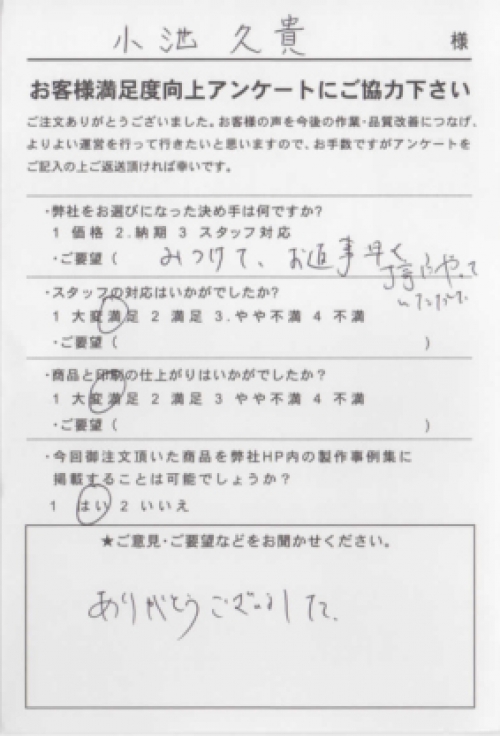 小池 久貴 様
お客様満足度向上アンケートにご協力下さい
ご注文ありがとうございました。お客様の声を今後の作業・品質改善につなげ、
よりよい運営を行って行きたいと思いますので、お手数ですがアンケートを
ご記入の上ご返送頂ければ幸いです。
・弊社をお選びになった決め手は何ですか?
1 価格 2.納期 3 スタッフ対応
・ご要望( みつけて、お返事早く
丁寧にやって
いただけた
・スタッフの対応はいかがでしたか?
1 大変満足 2 満足 3.やや不満 4 不満
・ご要望( )
・商品と印刷の仕上がりはいかがでしたか?
1 大変満足 2 満足 3 やや不満 4 不満
・ご要望( )
・今回御注文頂いた商品を弊社HP内の製作事例集に
掲載することは可能でしょうか?
1 はい 2 いいえ
★ご意見・ご要望などをお聞かせください。
ありがとうございました。